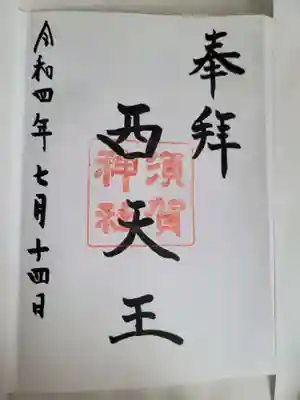 奉拝
西天王
須賀神社
令和四年七月十四日